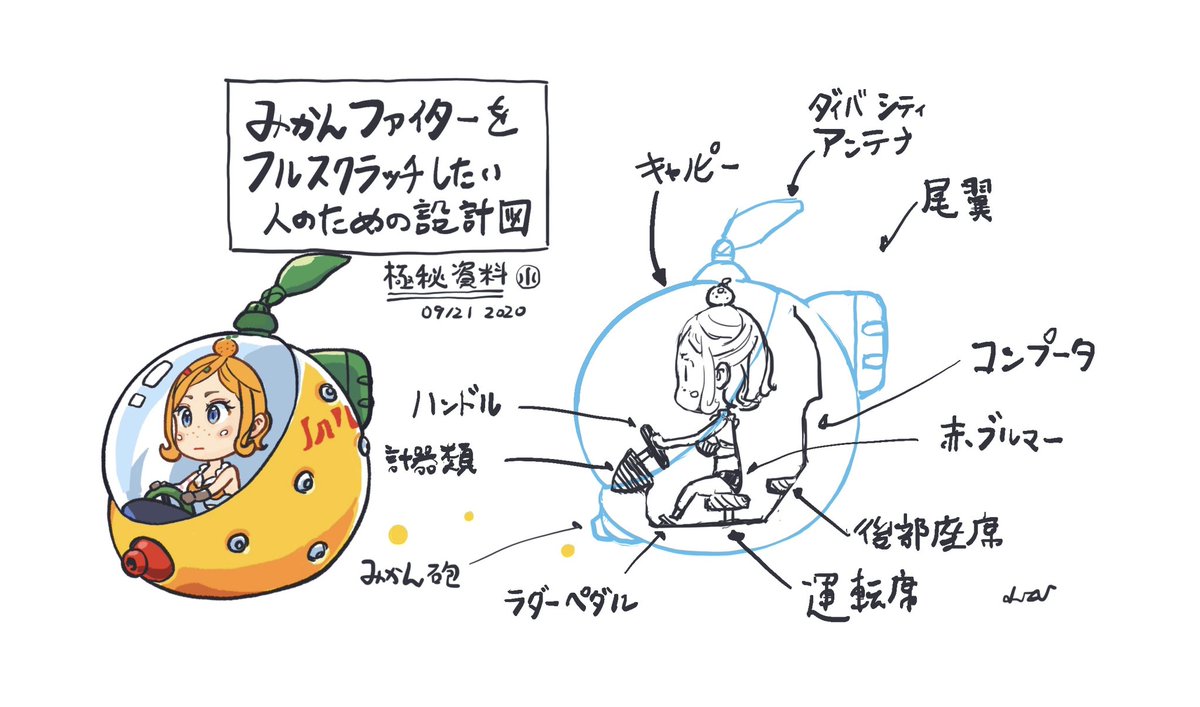 みかんファイターを
フルスクラッチしたい
人のための設計図
極秘資料 ㊌
09/21 2020
ダイバシティ
アンテナ
キャノピー
尾翼
コンピュータ
ハンドル
赤ブルマー
計器類
後部座席
みかん砲
ラダーペダル
運転席